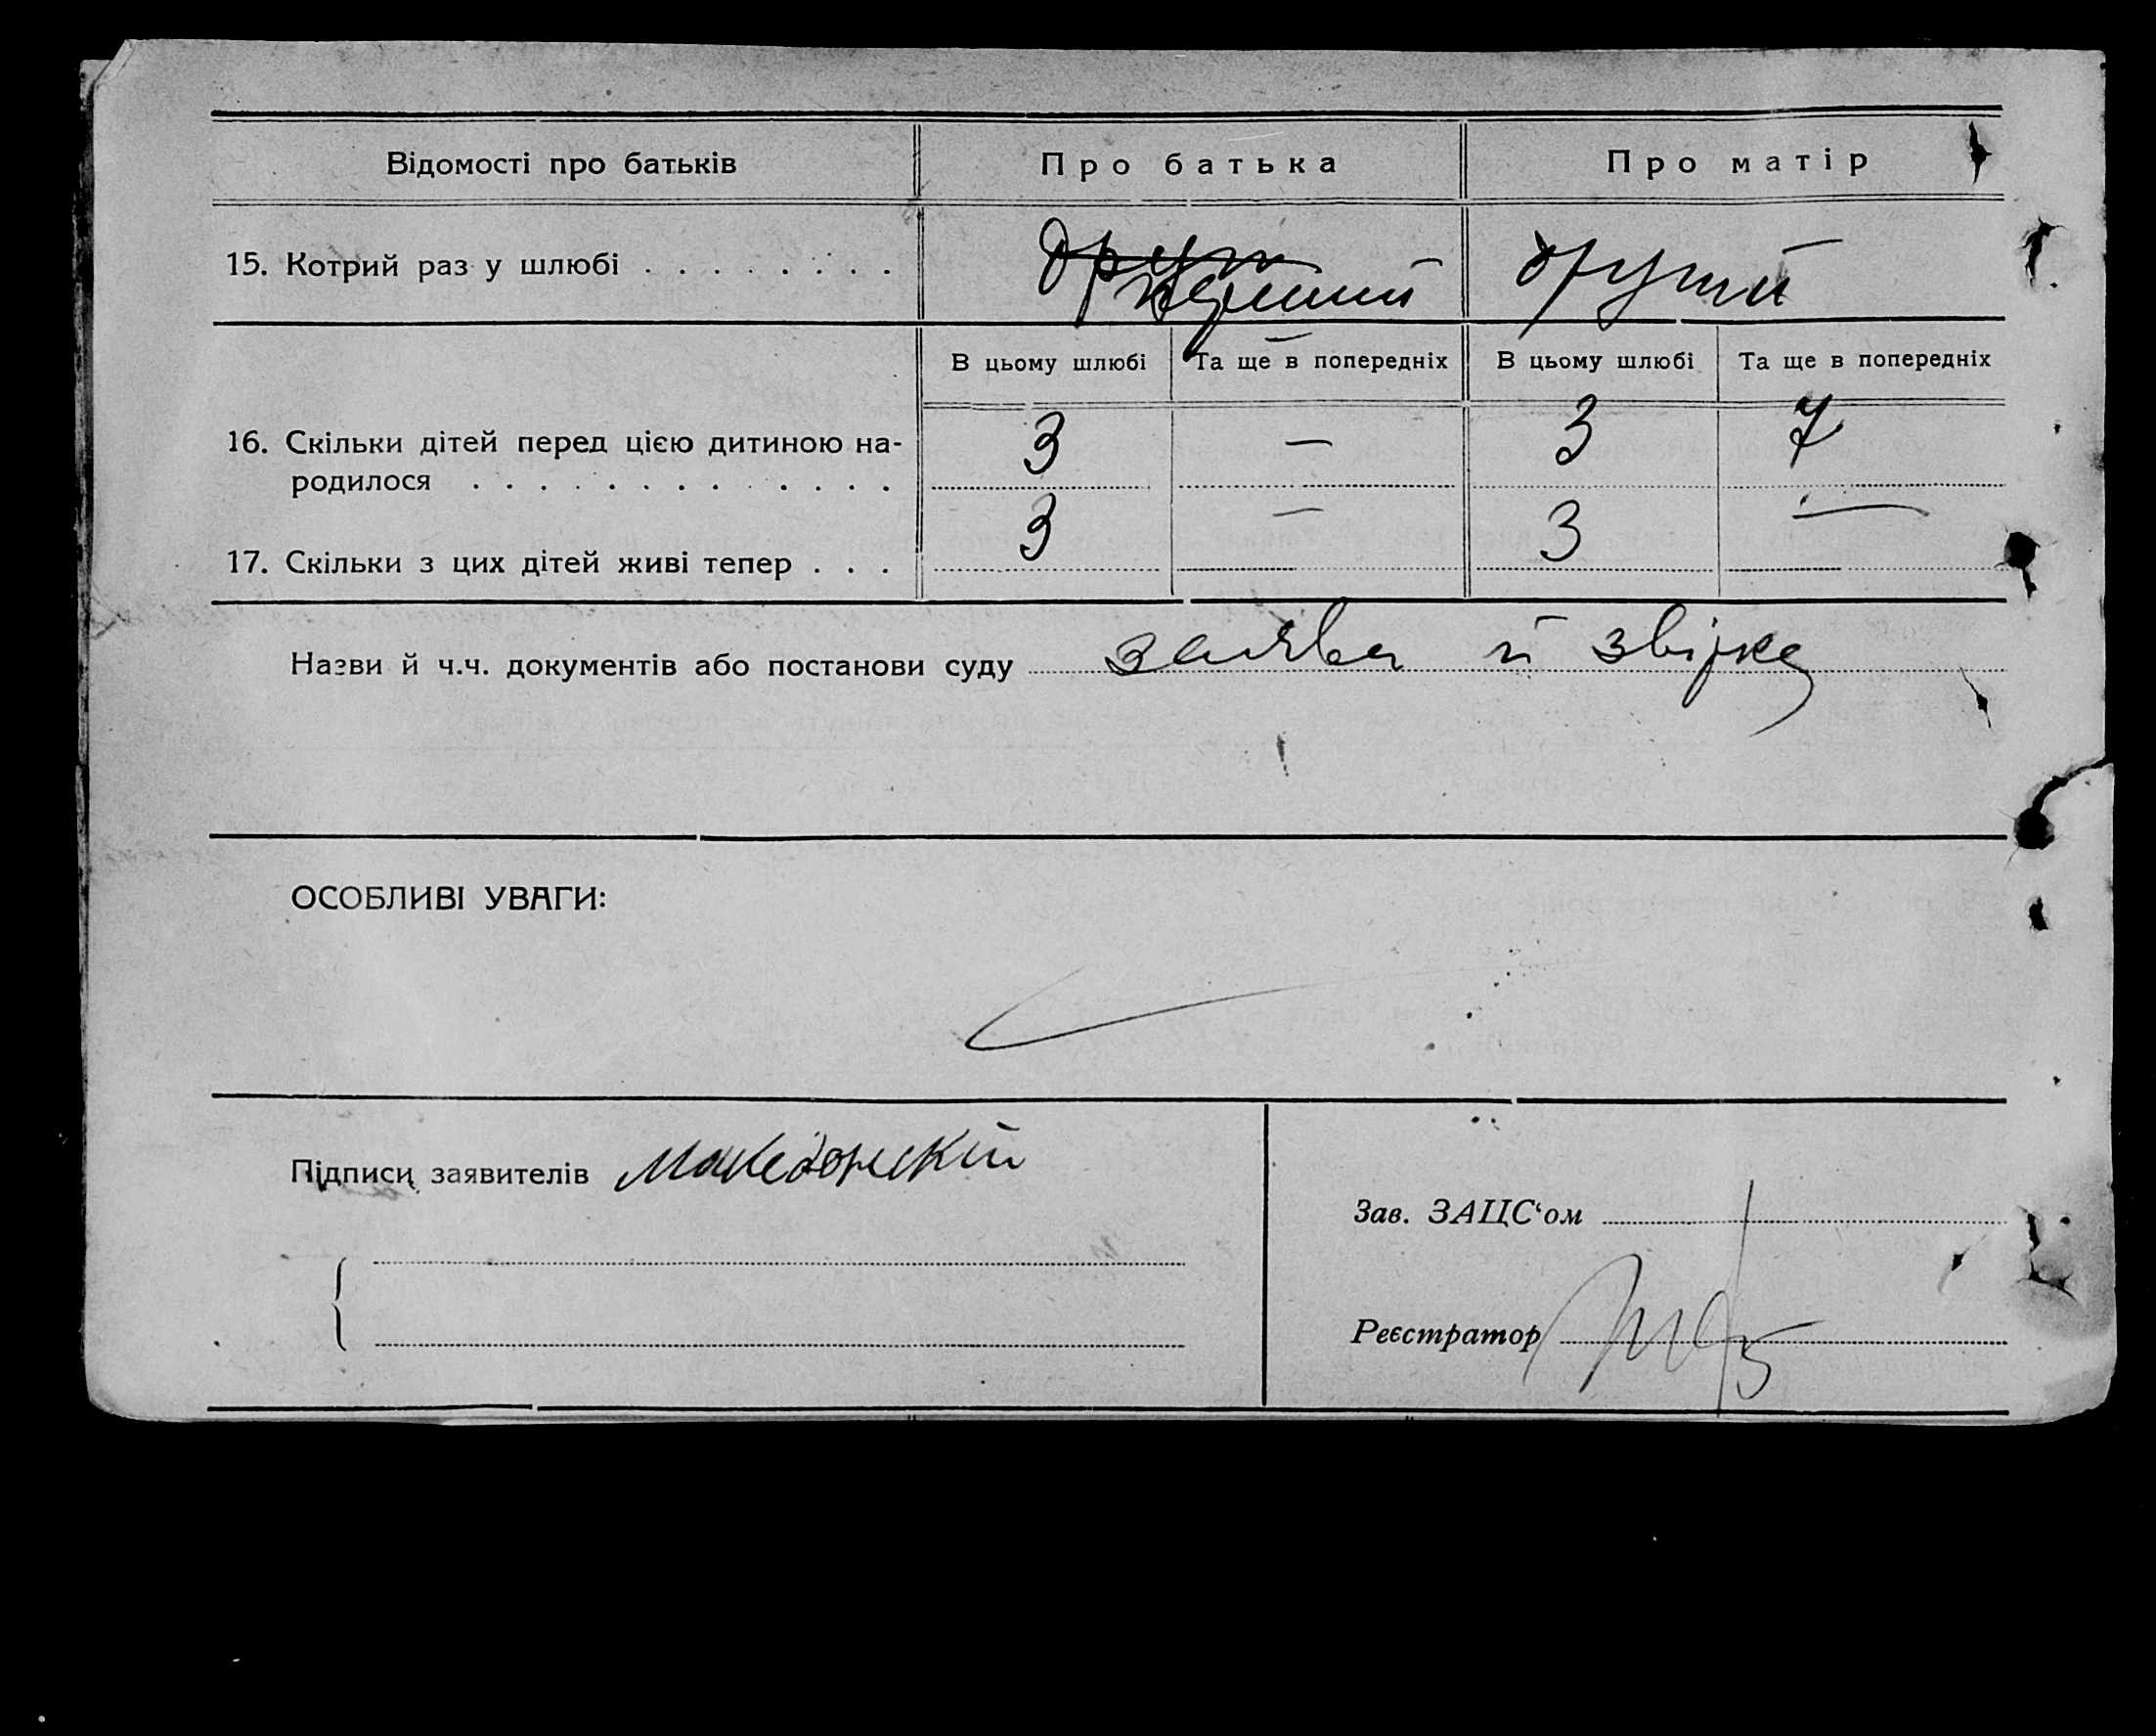 Відомості про батьків Про батька Про матір
15. Котрий раз у шлюбі . . . . . . . . друг перший другий
В цьому шлюбі Та ще в попередніх В цьому шлюбі Та ще в попередніх
16. Скільки дітей перед цією дитиною на-
родилося . . . . . . . . . . . . . 3 — 3 7
17. Скільки з цих дітей живі тепер . . . 3 — 3 —
Назви й ч.ч. документів або постанови суду заява й звірка
ОСОБЛИВІ УВАГИ:
Підписи заявителів Македонский
Зав. ЗАЦС‘ом
Реєстратор